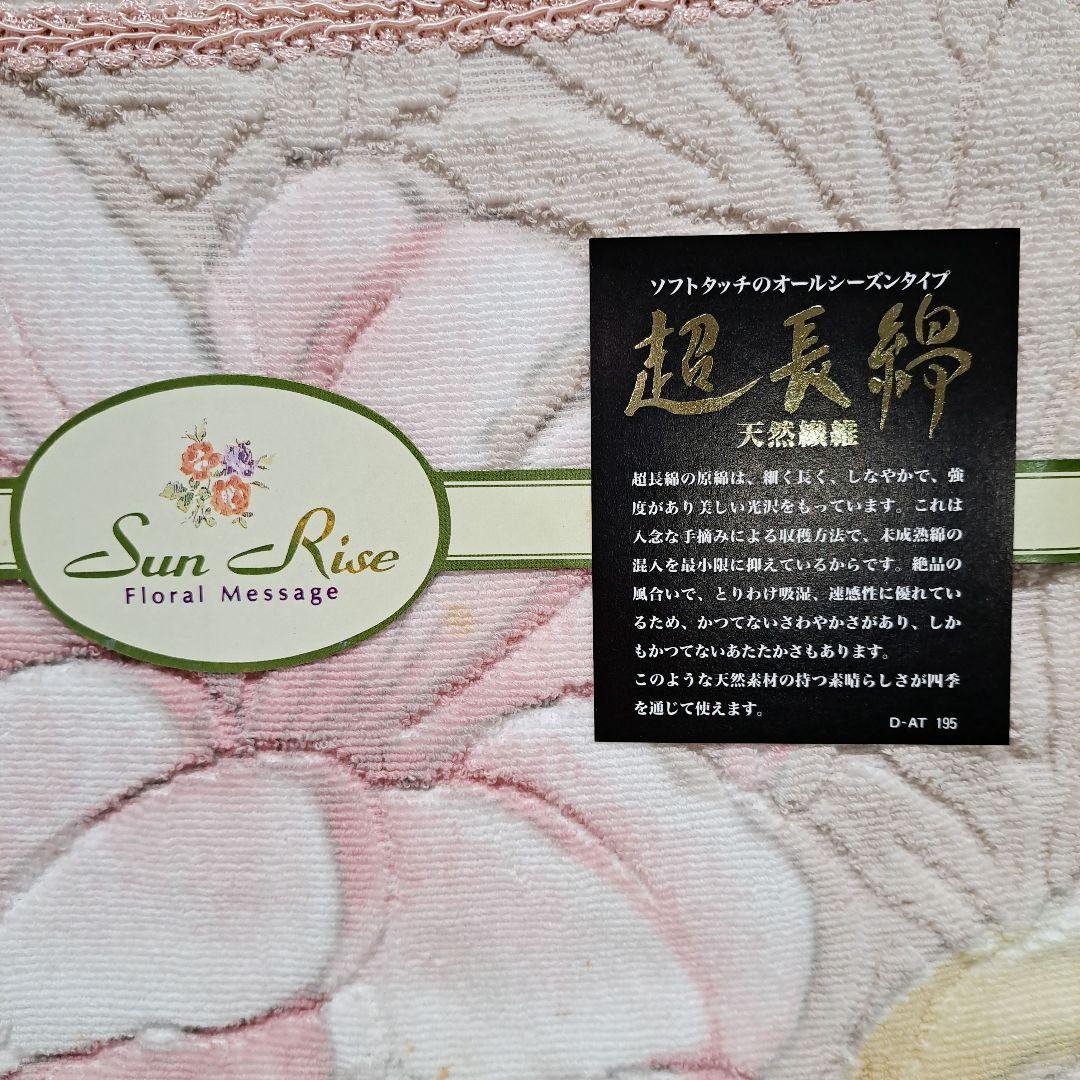 Sun Rise
Floral Message
ソフトタッチのオールシーズンタイプ
超長綿
天然繊維
超長綿の原綿は、細く長く、しなやかで、強
度があり美しい光沢をもっています。これは
入念な手摘みによる収穫方法で、未成熟綿の
混入を最小限に抑えているからです。絶品の
風合いで、とりわけ吸湿、速感性に優れてい
るため、かつてないさわやかさがあり、しか
もかつてないあたたかさもあります。
このような天然素材の持つ素晴らしさが四季
を通じて使えます。
D-AT 195